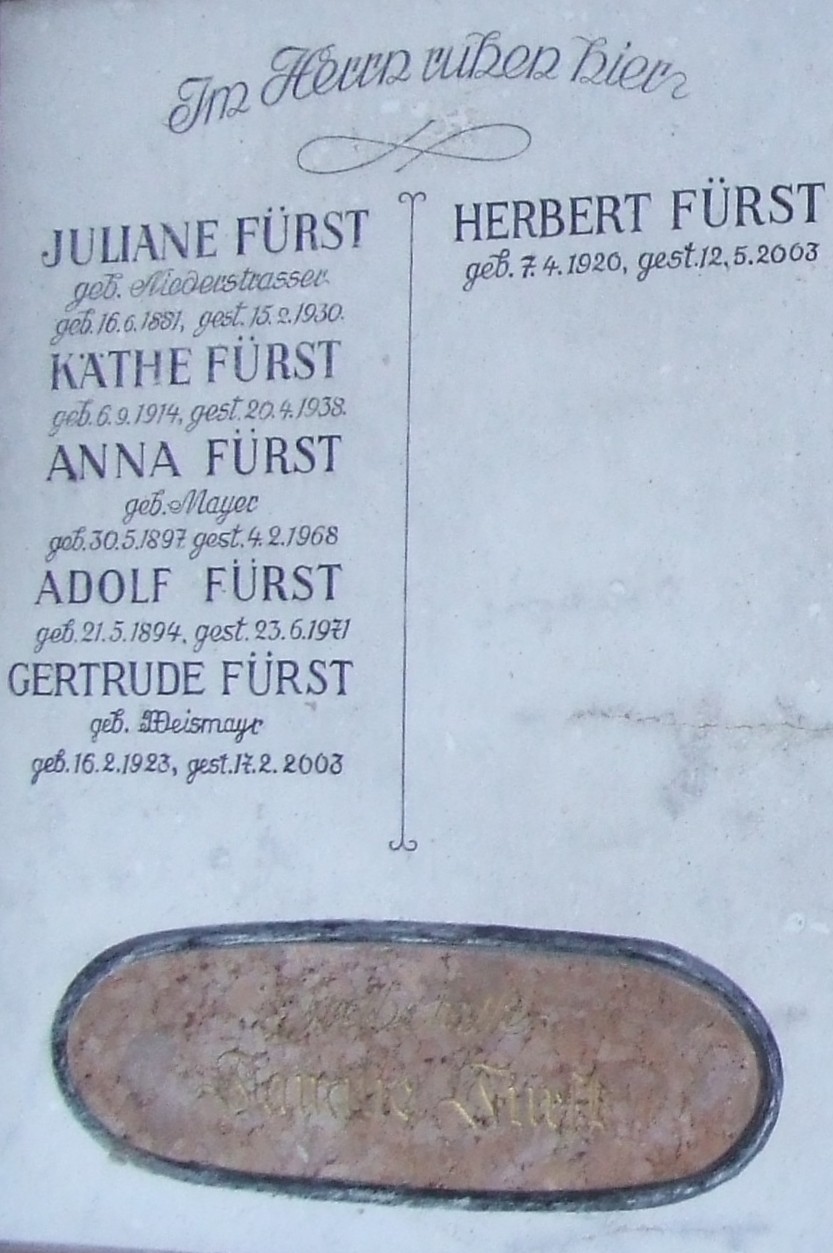 Im Herrn ruhen hier
JULIANE FÜRST
geb. Niederstrasser
geb. 16.6.1881, gest. 15.2.1930.
KÄTHE FÜRST
geb. 6.9.1914, gest. 20.4.1938.
ANNA FÜRST
geb. Mayer
geb. 30.5.1897 gest. 4.2.1968
ADOLF FÜRST
geb. 21.5.1894, gest. 23.6.1971
GERTRUDE FÜRST
geb. Weismayr
geb. 16.2.1923, gest. 17.2.2003
HERBERT FÜRST
geb. 7.4.1920, gest. 12.5.2003
Familie Fürst